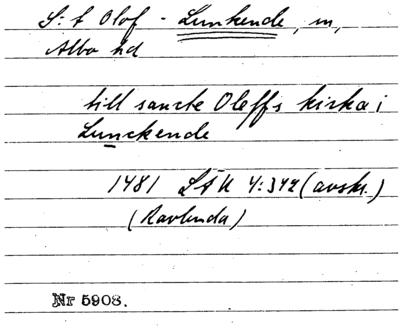 S:t Olof - Lunkende, in,
Albo hd
till sancte Oleffs kirka i
Lunckende
1481 LÄU 4:342 (avskr.)
(Ravlunda)
Nr 5908.